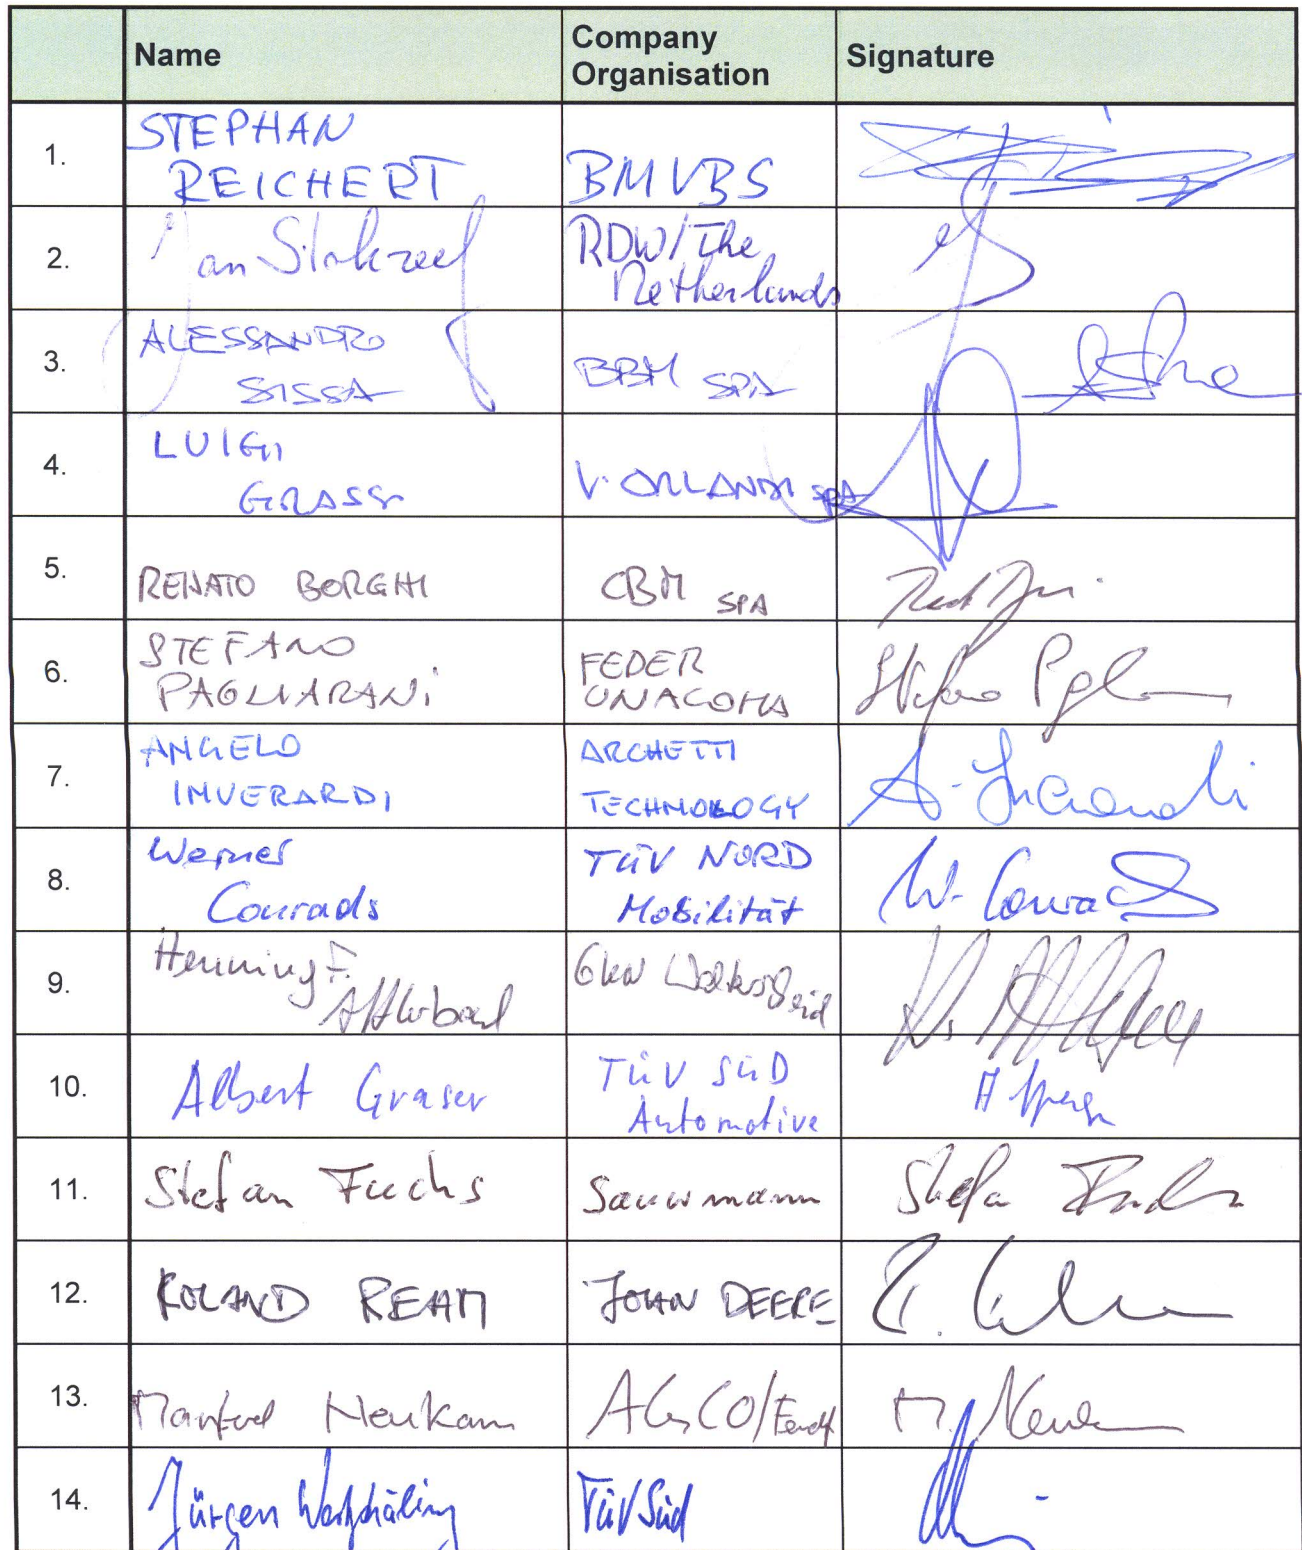 Name
Company
Organisation
Signature
1.
STEPHAN
REICHERT
BMVBS
2.
Jan
RDW/The
Netherlands
3.
ALESSANDRO
SISSA
BBM SPA
4.
LUIGI
GRASSI
V. ORLANDI SPA
5.
RENATO BORGHI
CBM SPA
6.
STEFANO
PAGLIARANI
FEDER
UNACOMA
Stefano
7.
ANGELO
INVERARDI
ARCHETTI
TECHNOLOGY
A. Inverardi
8.
Werner
Conrads
TÜV NORD
Mobilität
W. Conrads
9.
Henning F.
10.
Albert Graser
TÜV SÜD
Automotive
11.
Stefan Fuchs
Sauermann
Stefan Fuchs
12.
ROLAND REHM
JOHN DEERE
13.
Manfred Neukam
AGCO/Fendt
14.
Jürgen Westphäling
TÜV Süd